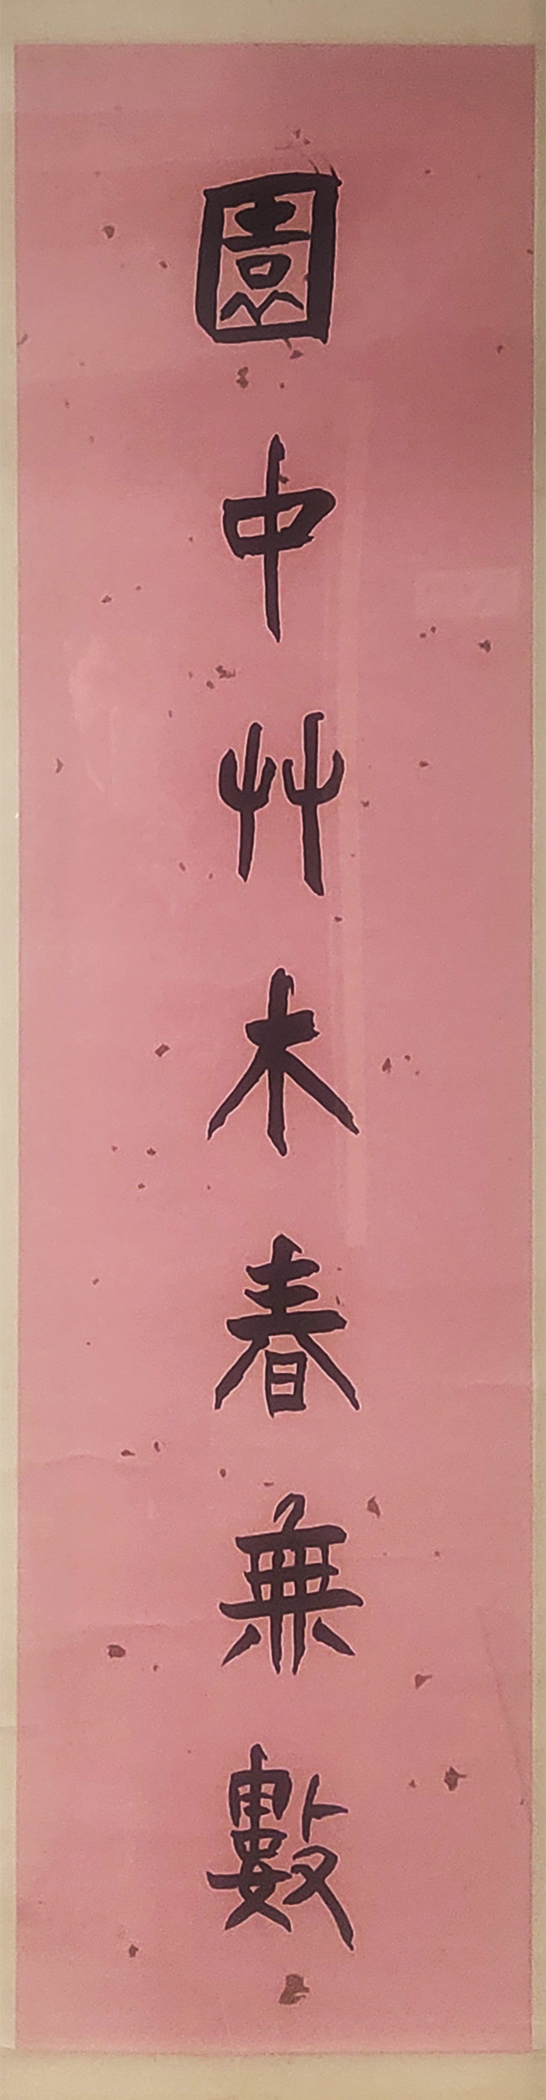 園中艸木春無數